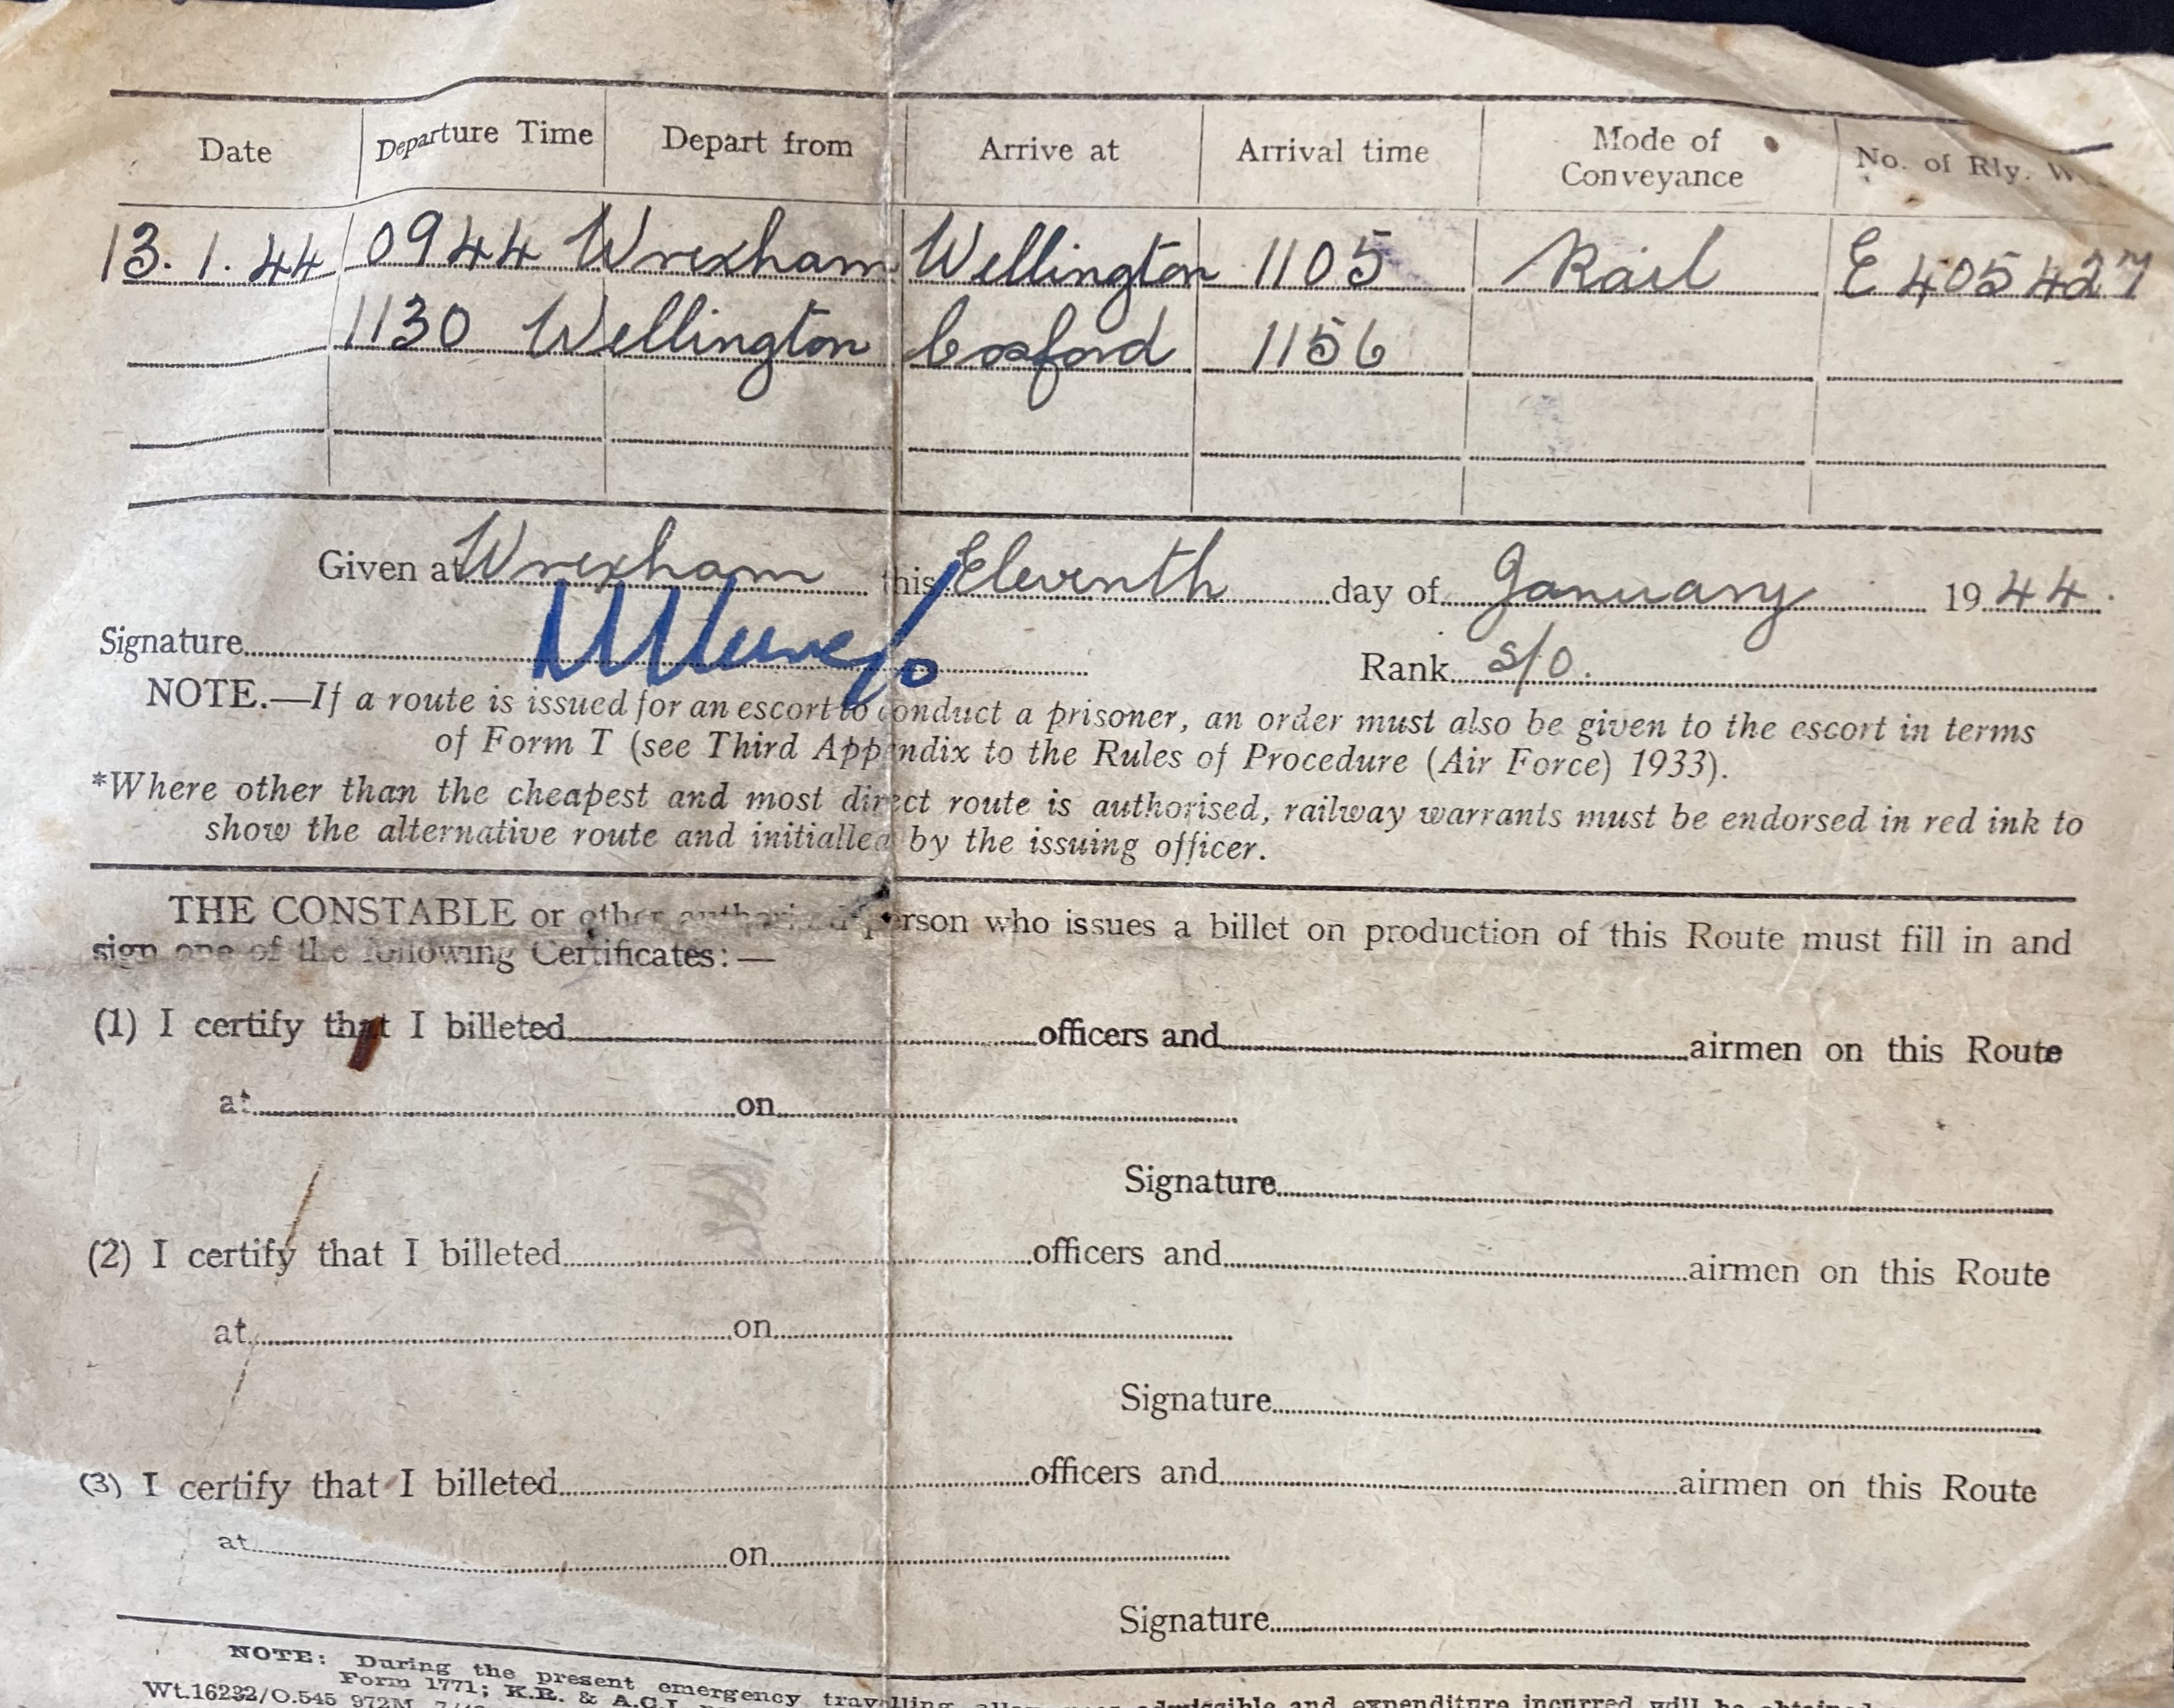 Date Departure Time Depart from Arrive at Arrival time Mode of Conveyance No. of Rly.
13.1.44 0944 Wrexham Wellington 1105 Rail E 405427
1130 Wellington Cosford 1156
Given at Wrexham this Eleventh day of January 1944.
Signature Rank S/O.
NOTE.—If a route is issued for an escort to conduct a prisoner, an order must also be given to the escort in terms
of Form T (see Third Appendix to the Rules of Procedure (Air Force) 1933).
*Where other than the cheapest and most direct route is authorised, railway warrants must be endorsed in red ink to
show the alternative route and initialled by the issuing officer.
THE CONSTABLE or other authorized person who issues a billet on production of this Route must fill in and
sign one of the following Certificates:—
(1) I certify that I billeted officers and airmen on this Route
at on
Signature
(2) I certify that I billeted officers and airmen on this Route
at on
Signature
(3) I certify that I billeted officers and airmen on this Route
at on
Signature
NOTE: During the present emergency travelling admissible and expenditure incurred will be obtained
Form 1771; K.R. & A.C.I.
Wt.16232/O.545 972M